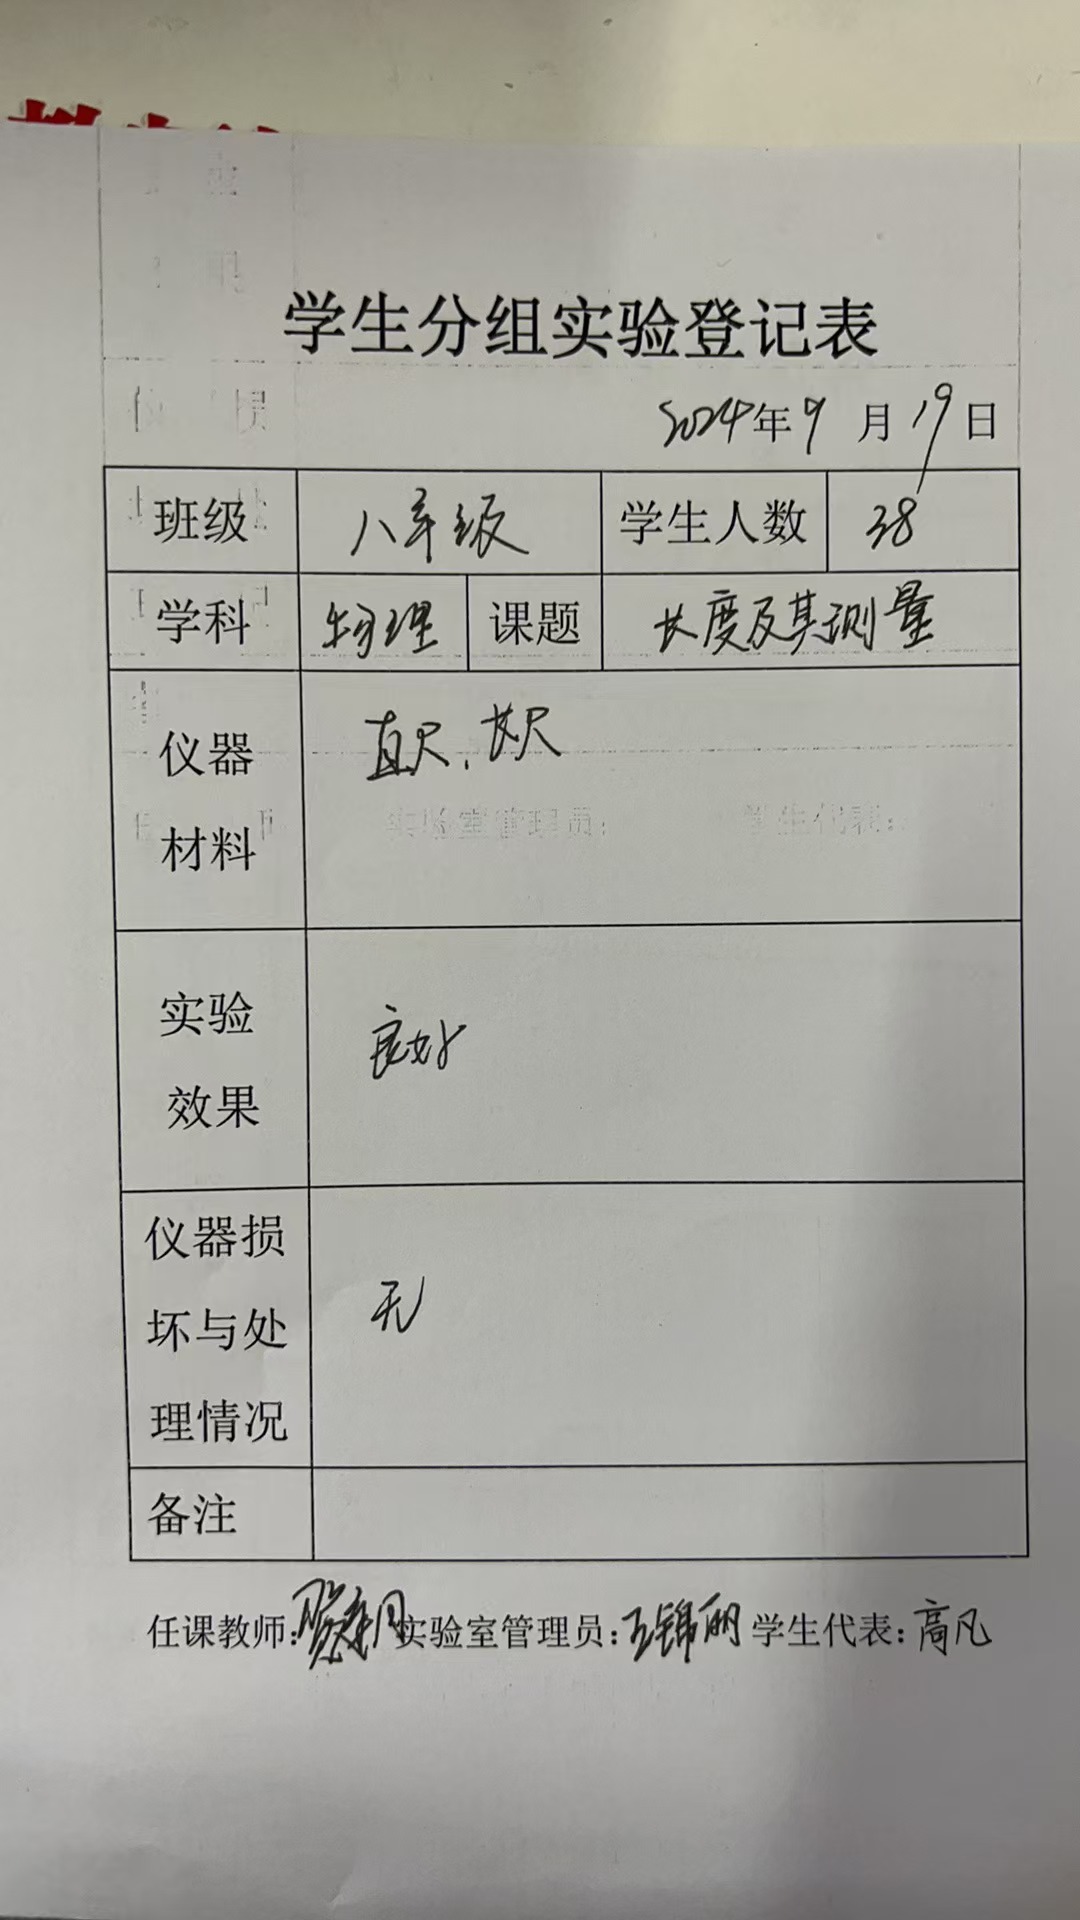 学生分组实验登记表
2024年9月19日
班级 八年级 学生人数 38
学科 物理 课题 长度及其测量
仪器 直尺、长尺
材料
实验 良好
效果
仪器损
坏与处 无
理情况
备注
任课教师: 实验室管理员:王锦丽 学生代表:高凡